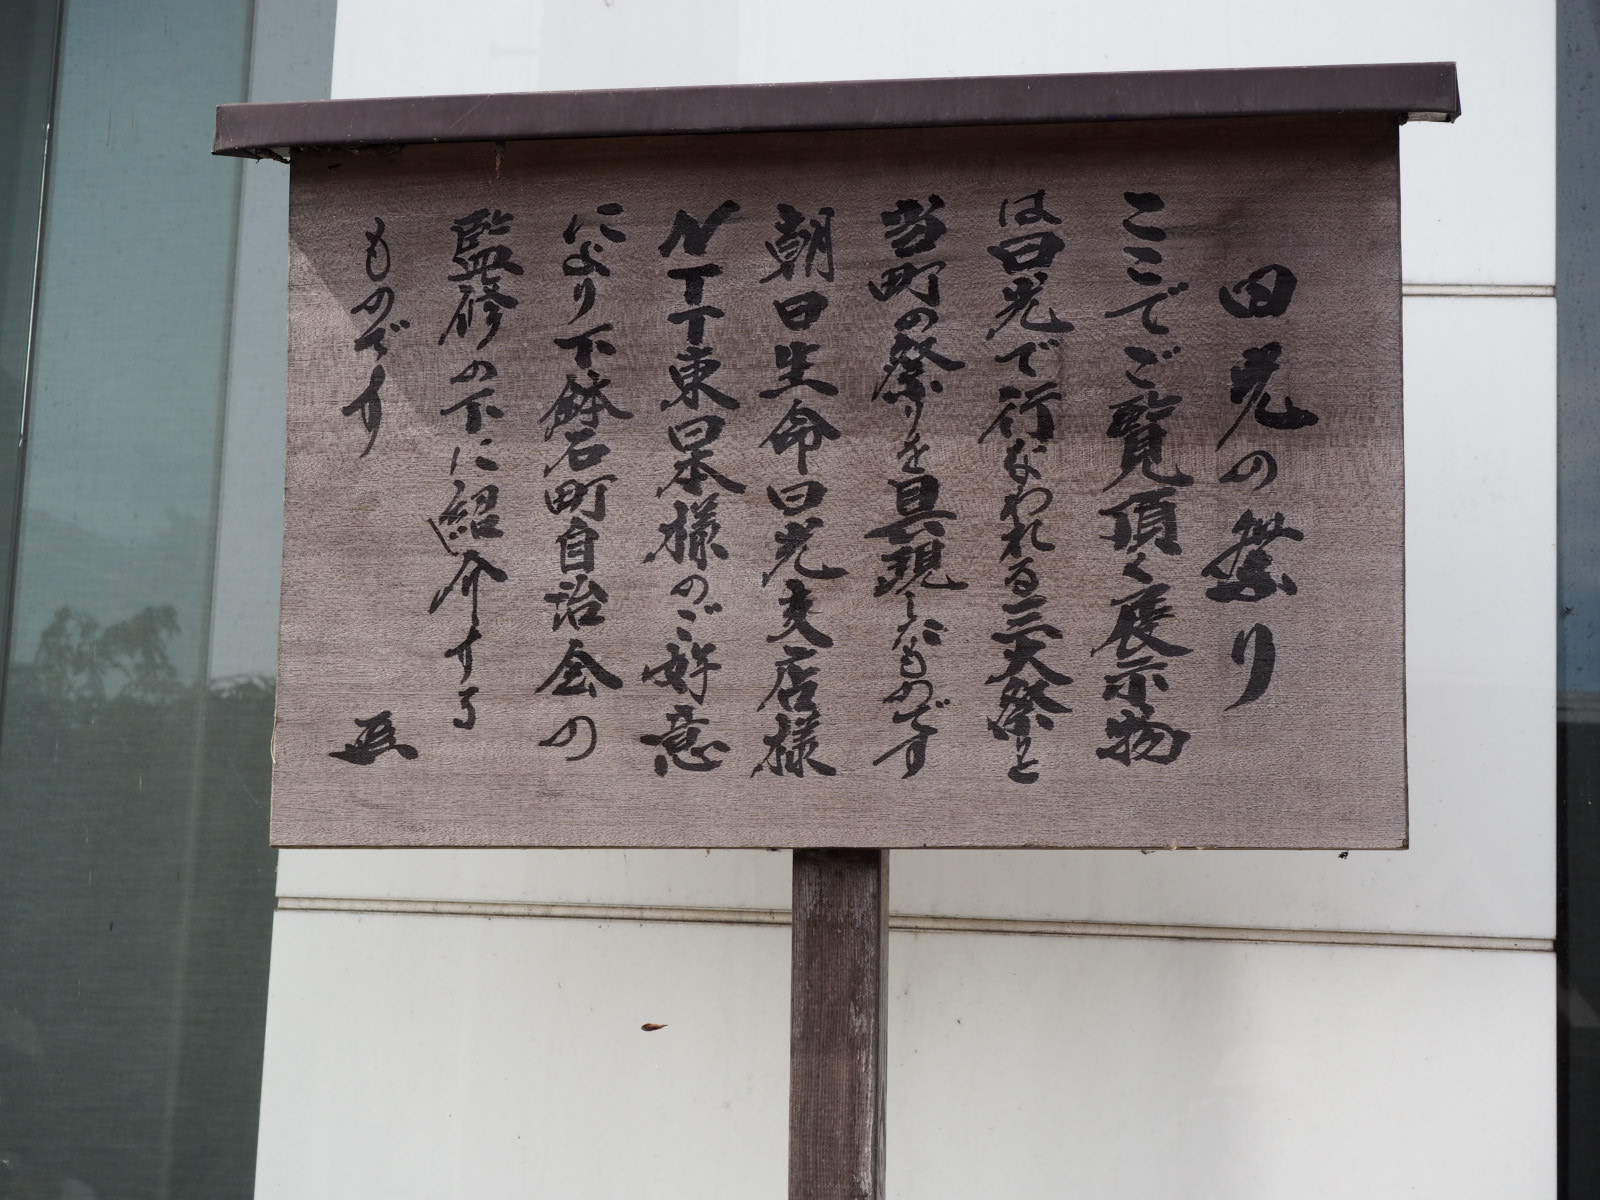 日光の祭り
ここでご覧頂く展示物
は日光で行なわれる三大祭りと
当町の祭りを具現したものです
朝日生命日光支店様
NTT東日本様のご好意
により下鉢石町自治会の
監修の下に紹介する
ものです